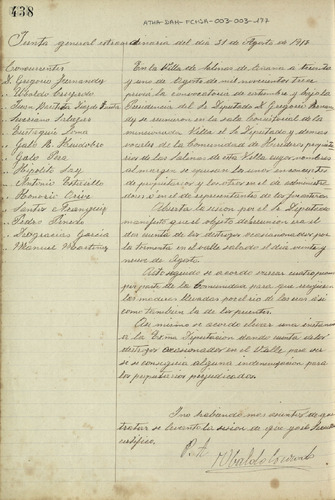 438
ATHA-DAH-FCISA-003-003-177
Junta general extraordinaria del día 31 de Agosto de 1913
Concurrentes
D. Gregorio Fernandez
" Ubaldo Cuezardo
" Juan Bautista
" Luciano Salazar
" Eustaquio Loma
" Galo R.
" Galo Pera
" Hipolito Lay
" Antonio
" Honorio Orive
" Santos
" Pedro Pinedo
" Deogracias Garcia
" Manuel Martinez
En la Villa de Salinas de Añana a treinta
y uno de Agosto de mil novecientos trece
previa la convocatoria de costumbre y bajo la
Presidencia del Sr Diputado D. Gregorio Fernan-
dez se reunieron en la sala Consistorial de la
mencionada Villa el Sr Diputado y demas
vocales de la Comunidad de Herederos propieta-
rios de las Salinas de esta Villa cuyos nombres
al margen se expresan los unos en concepto
de propietarios y los otros en el de administra-
dores o en el de representantes de los
Abierta la sesion por el Sr Diputado
manifestó que el objeto de la reunion era el
dar cuenta de los destrozos ocasionados por
la tormenta en el valle salado el dia veinte y
nueve de Agosto.
Acto seguido se acordó
por parte de la Comunidad para que recojieran
las maderas llevadas por el rio de las eras asi
como tambien la de los puentes.
Asi mismo se acordó elevar una instancia
a la Exma Diputacion dando cuenta de los
destrozos ocasionados en el Valle para ver
si se conseguia alguna indemnizacion para
los propietarios perjudicados.
Y no habiendo mas asuntos de que
tratar se levantó la sesion de que yo el Secretario
certifico.
P. A.
Ubaldo